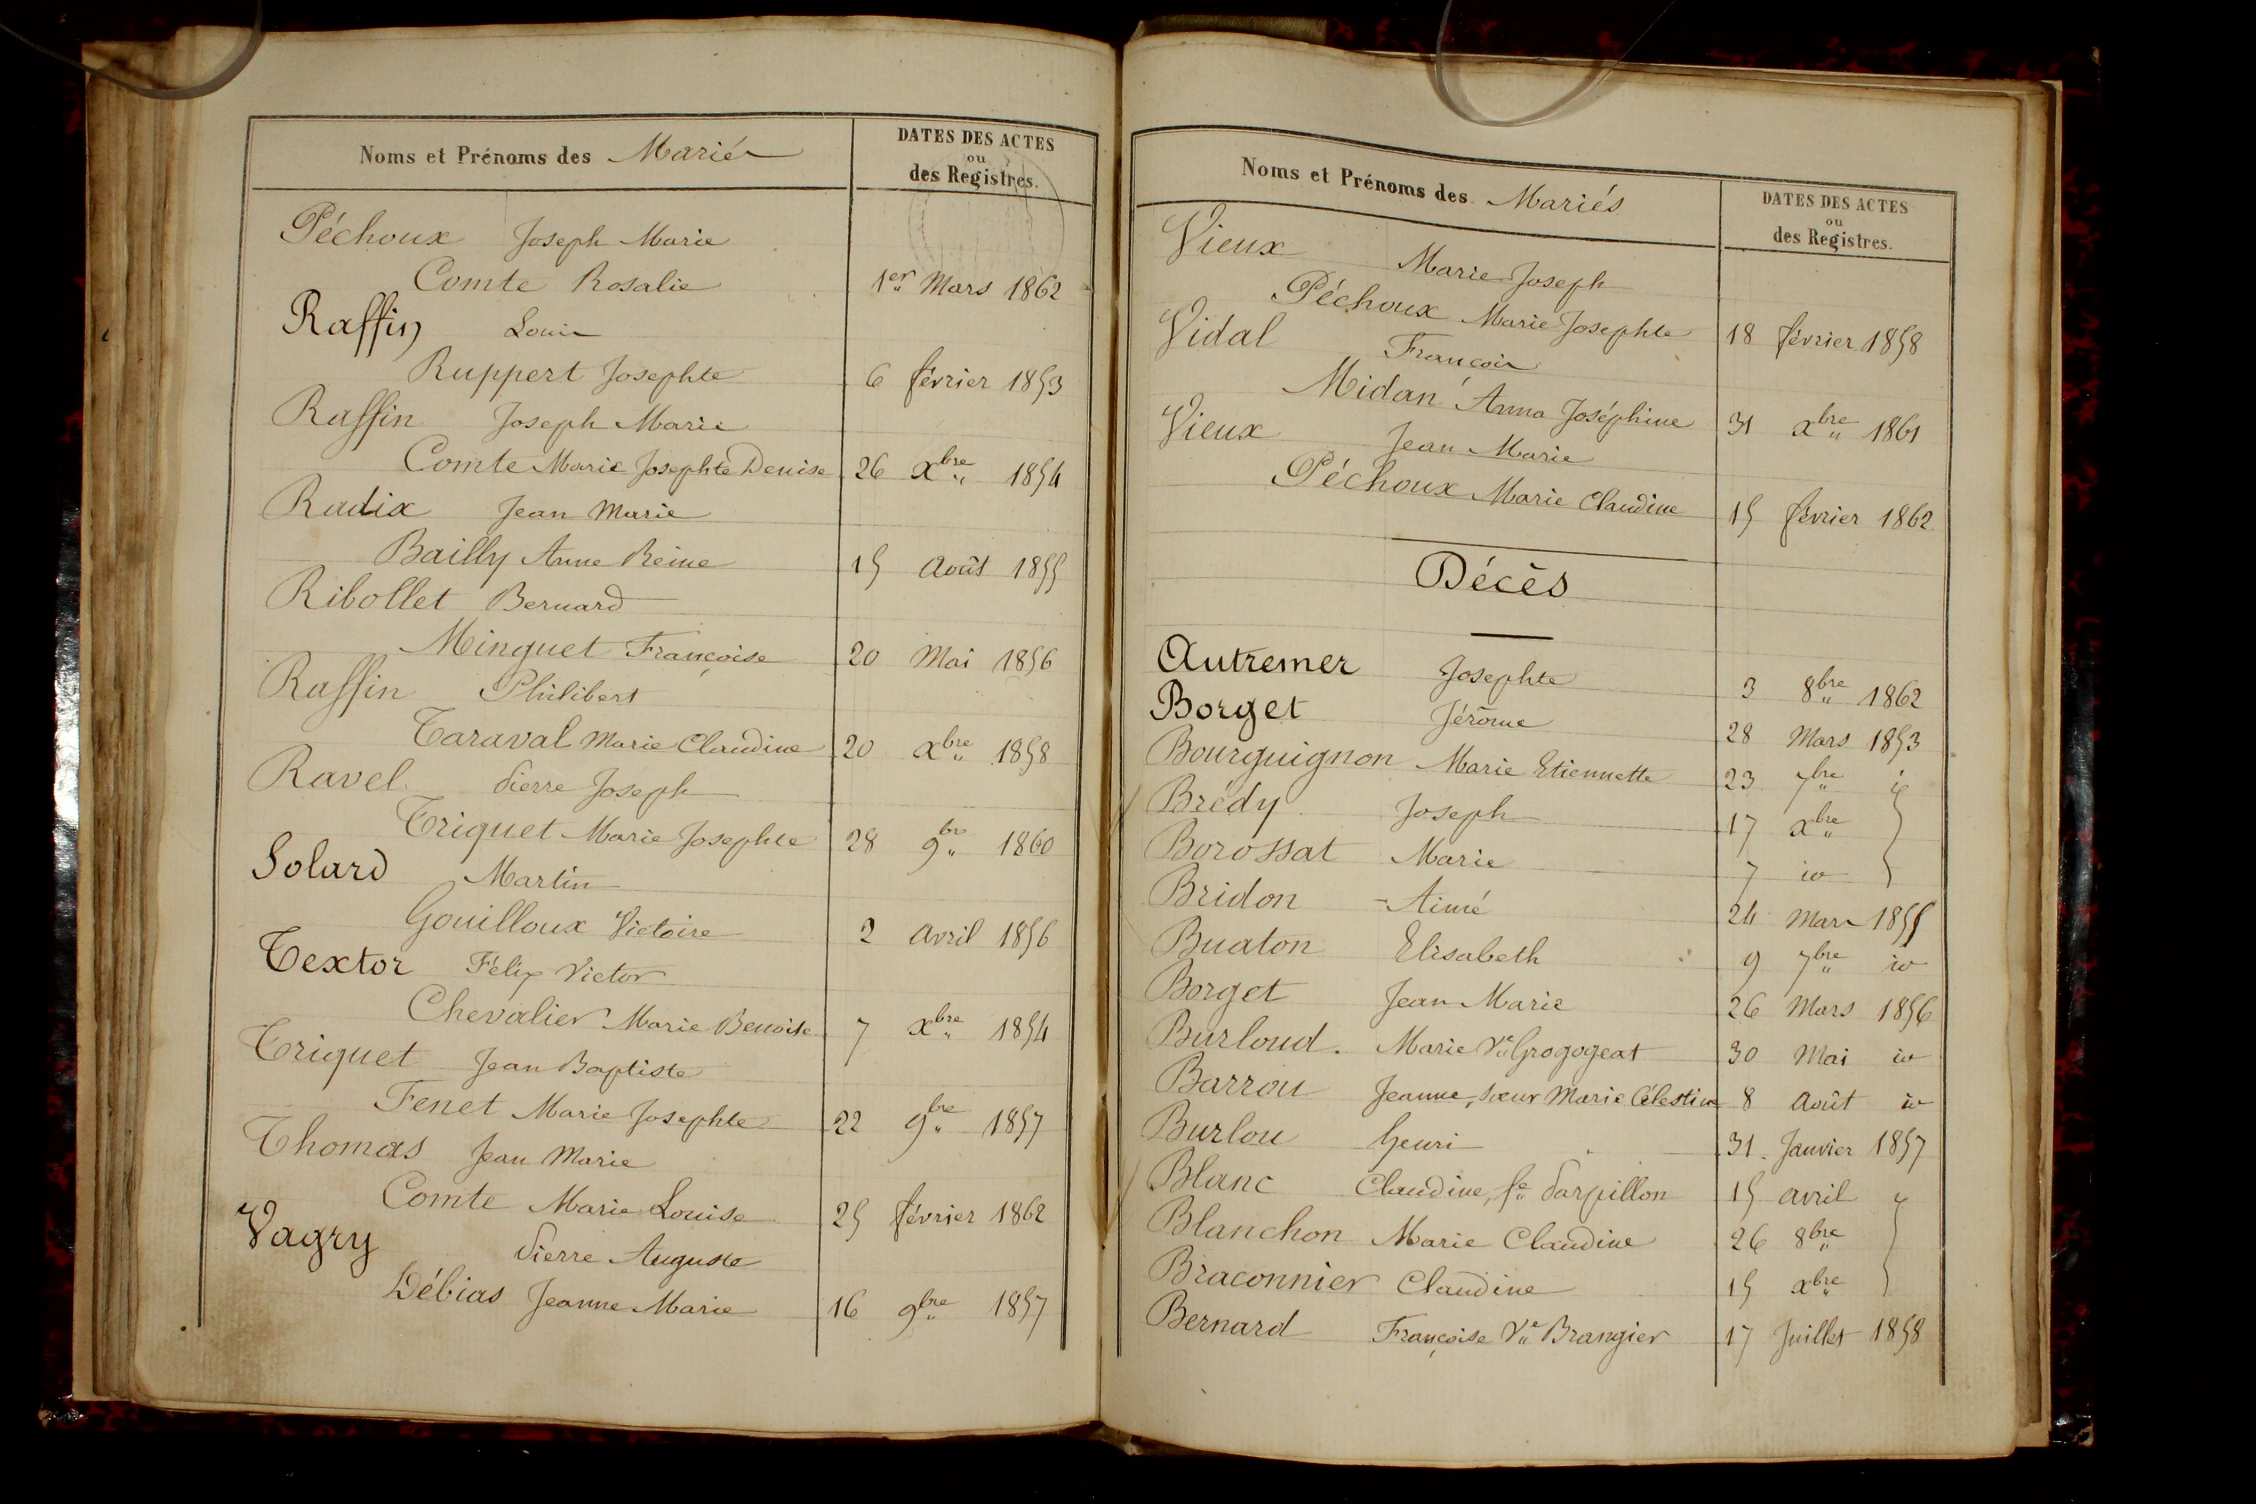 Noms et Prénoms des Mariés
DATES DES ACTES
ou
des Registres.
Péchoux Joseph Marie
Comte Rosalie 1er Mars 1862
Raffin Louis
Ruppert Josephte 6 février 1853
Raffin Joseph Marie
Comte Marie Josephte Denise 26 xbre 1854
Radix Jean Marie
Bailly Anne Reine 15 Août 1855
Ribollet Bernard
Minguet Françoise 20 Mai 1856
Raffin Philibert
Taraval Marie Claudine 20 xbre 1858
Ravel Pierre Joseph
Triquet Marie Josephte 28 9bre 1860
Solard Martin
Gouilloux Victoire 2 Avril 1856
Textor Félix Victor
Chevalier Marie Benoite 7 xbre 1854
Triquet Jean Baptiste
Fenet Marie Josephte 22 9bre 1857
Thomas Jean Marie
Comte Marie Louise 25 février 1862
Vagry Pierre Auguste
Débias Jeanne Marie 16 9bre 1857
Noms et Prénoms des Mariés
DATES DES ACTES
ou
des Registres.
Vieux Marie Joseph
Péchoux Marie Josephte 18 février 1858
Vidal François
Midan Anna Joséphine 31 xbre 1861
Vieux Jean Marie
Péchoux Marie Claudine 15 février 1862
Décès
Autremer Josephte 3 8bre 1862
Borget Jérôme 28 Mars 1853
Bourguignon Marie Etiennette 23 7bre
Brédy Joseph 17 xbre
Borossat Marie 7 id
Bridon Aimé 24 Mars 1855
Buaton Elisabeth 9 7bre id
Borget Jean Marie 26 Mars 1856
Burloud. Marie Ve Grogogeat 30 Mai id
Barrou Jeanne, sœur Marie Célestine 8 Août id
Burlou henri 31. Janvier 1857
Blanc Claudine, fe Parpillon 15 avril
Blanchon Marie Claudine 26 8bre
Braconnier Claudine 15 xbre
Bernard Françoise Ve Brangier 17 Juillet 1858